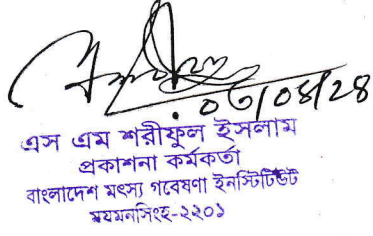 ০৩/০৪/২৪
এস এম শরীফুল ইসলাম
প্রকাশনা কর্মকর্তা
বাংলাদেশ মৎস্য গবেষণা ইনস্টিটিউট
ময়মনসিংহ-২২০১